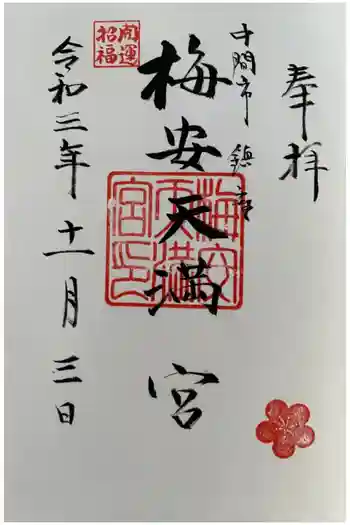 奉拝
中間市 鎮座
梅安天満宮
梅安天満宮印
開運招福
令和三年十一月三日